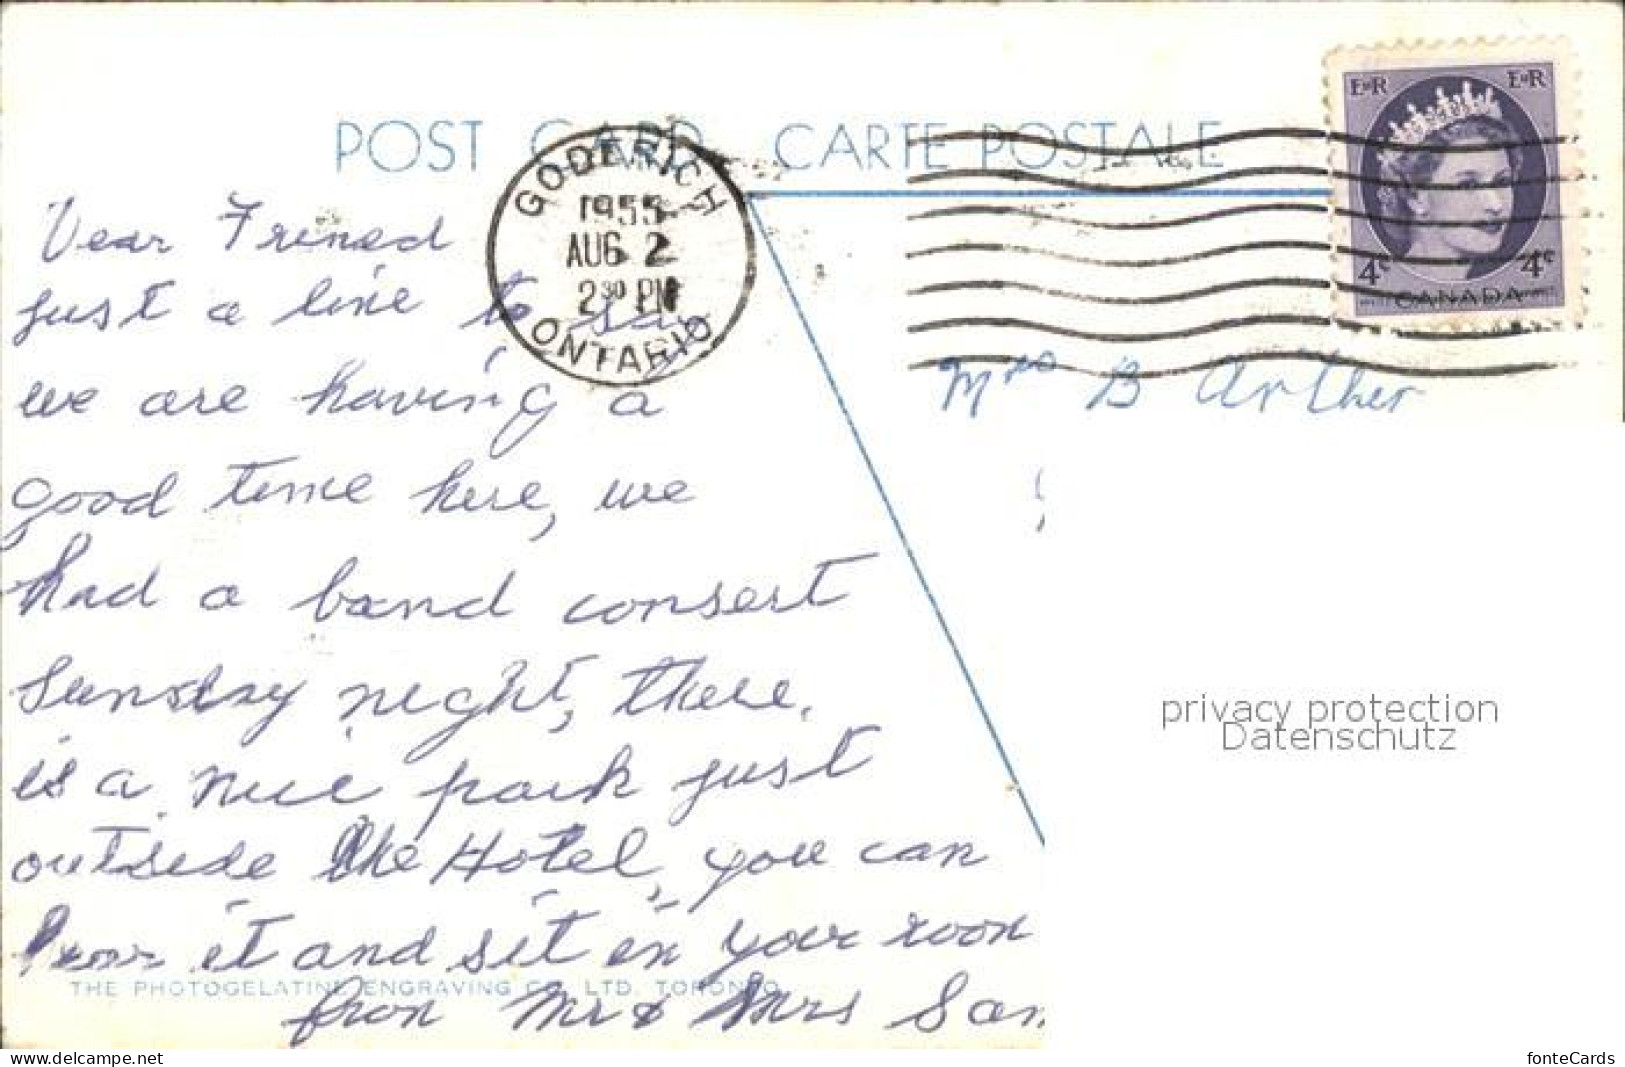 POST CARD CARTE POSTALE
GODERICH
1955
AUG 2
2 30 PM
ONTARIO
E II R E II R
4c 4c
CANADA
Dear Frined
just a line to say
we are having a
good time here, we
had a band consert
Sunday night, there.
is a nice park just
outside the Hotel, you can
it and sit in your room
from Mr & Mrs Sam
Mrs B Arther
privacy protection
Datenschutz
THE PHOTOGELATINE ENGRAVING CO. LTD. TORONTO
delcampe.net
fonteCards